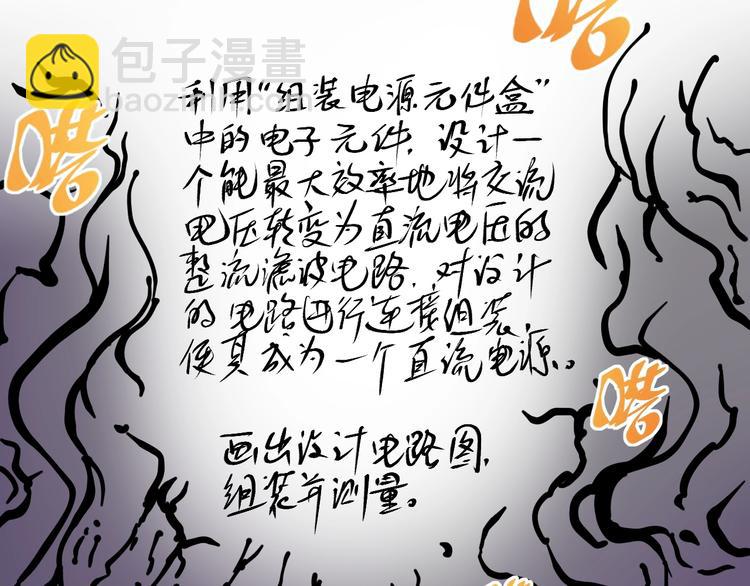 包子漫畫
baozimh.com
利用“组装电源元件盒”
中的电子元件，设计一
个能最大效率地将交流
电压转变为直流电压的
整流滤波电路，对设计
的电路进行连接组装，
使其成为一个直流电源。
画出设计电路图，
组装并测量。
嗒
嗒
嗒